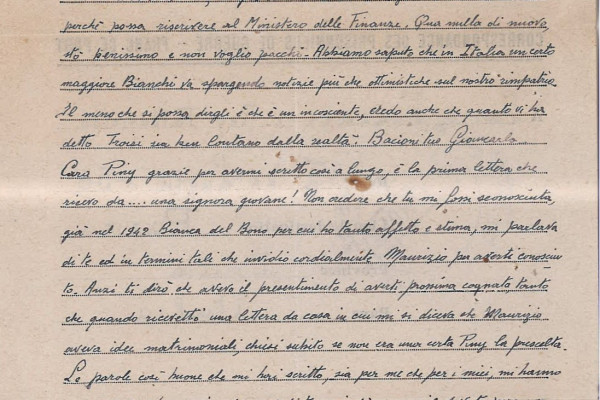 perchè possa riscrivere al Ministero delle Finanze. Qua nulla di nuovo
stò benissimo e non voglio pacchi - Abbiamo saputo che in Italia un certo
maggiore Bianchi va spargendo notizie più che ottimistiche sul nostro rimpatrio.
Il meno che si possa dirgli è che è un incosciente, credo anche che quanto vi ha
detto Troisi sia ben lontano dalla realtà. Bacioni tuo Giancarlo
Cara Piny grazie per avermi scritto così a lungo, è la prima lettera che
ricevo da.... una signora giovane! Non credere che tu mi fossi sconosciuta,
già nel 1942 Bianca del Bono per cui ho tanto affetto e stima, mi parlava
di te ed in termini tali che invidio cordialmente Maurizio per averti conosciu
to. Anzi ti dirò che avevo il presentimento di averti prossima cognata tanto
che quando ricevetti una lettera da casa in cui mi si diceva che Maurizio
aveva idee matrimoniali, chiesi subito se non era una certa Piny la prescelta.
Le parole così buone che mi hai scritto, sia per me che per i miei, mi hanno